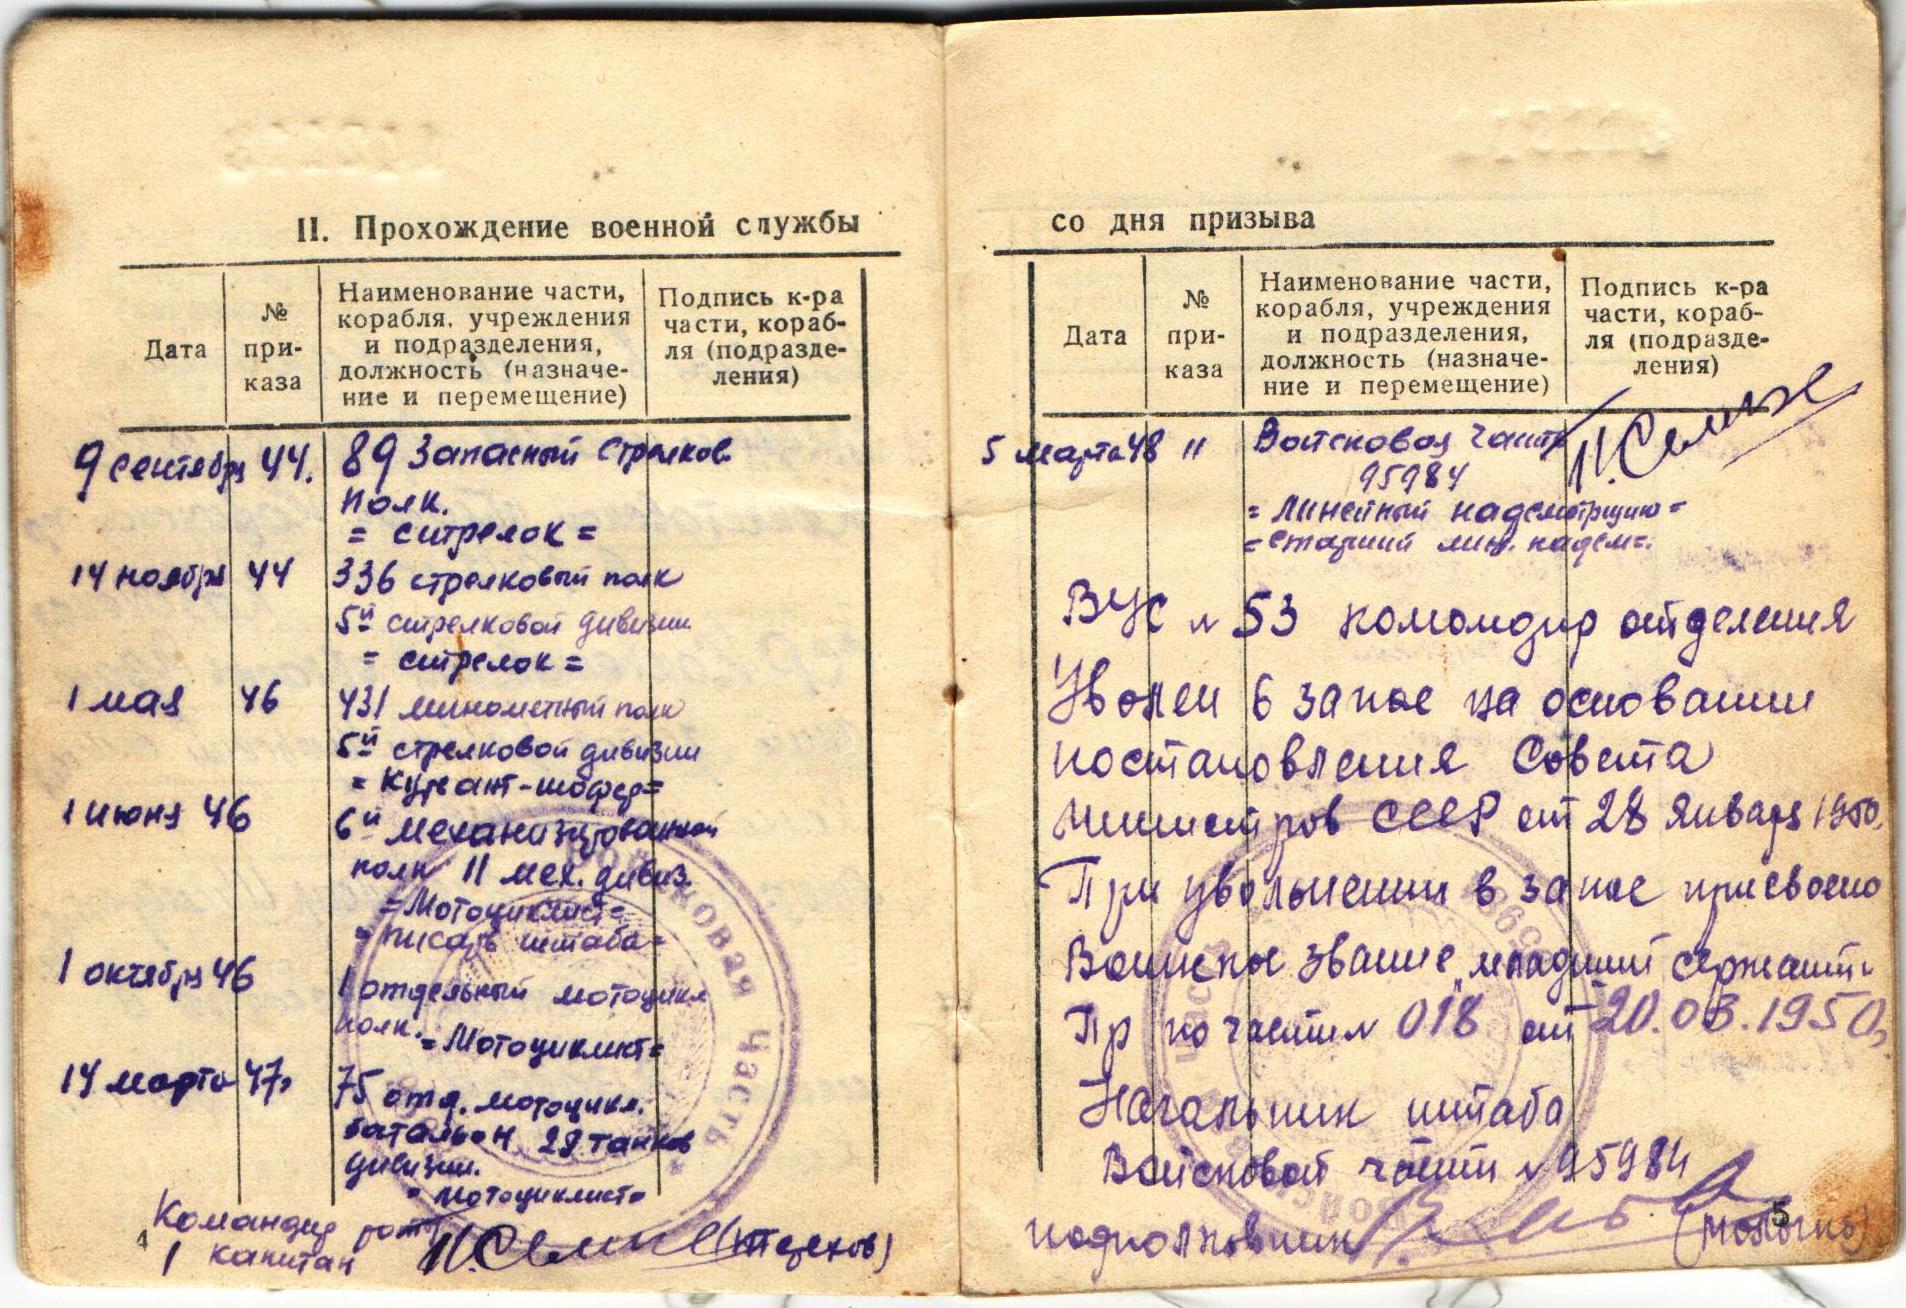 II. Прохождение военной службы
Дата
№ при-
каза
Наименование части,
корабля, учреждения
и подразделения,
должность (назначе-
ние и перемещение)
Подпись к-ра
части, кораб-
ля (подразде-
ления)
9 сентября 44. 89 Запасный Стрелков.
полк.
= стрелок =
14 ноября 44 336 стрелковый полк
5й стрелковой дивизии
= стрелок =
1 мая 46 431 минометный полк
5й стрелковой дивизии
= Курсант-шофер=
1 июня 46 6й механизированный
полк 11 мех. дивиз.
=Мотоциклист=
=писарь штаба=
1 октября 46 1 отдельный мотоцикл
полк.
=Мотоциклист=
14 марта 47г 75 отд. мотоцикл.
батальон 29 танков
дивизии.
= мотоциклист=
Командир роты
капитан
4
Войсковая часть
со дня призыва
Дата
№
при-
каза
Наименование части,
корабля, учреждения
и подразделения,
должность (назначе-
ние и перемещение)
Подпись к-ра
части, кораб-
ля (подразде-
ления)
5 марта 48 11 Войсковая часть
95984
= линейный надсмотрщик=
=старший лин. надсм=.
ВУС № 53 командир отделения
Уволен в запас на основании
постановления Совета
Министров СССР от 28 января 1950.
При увольнении в запас присвоено
Воинское звание „младший сержант"
Пр по части № 018 от 20.03.1950г
Начальник штаба
Войсковой части № 95984
подполковник
5